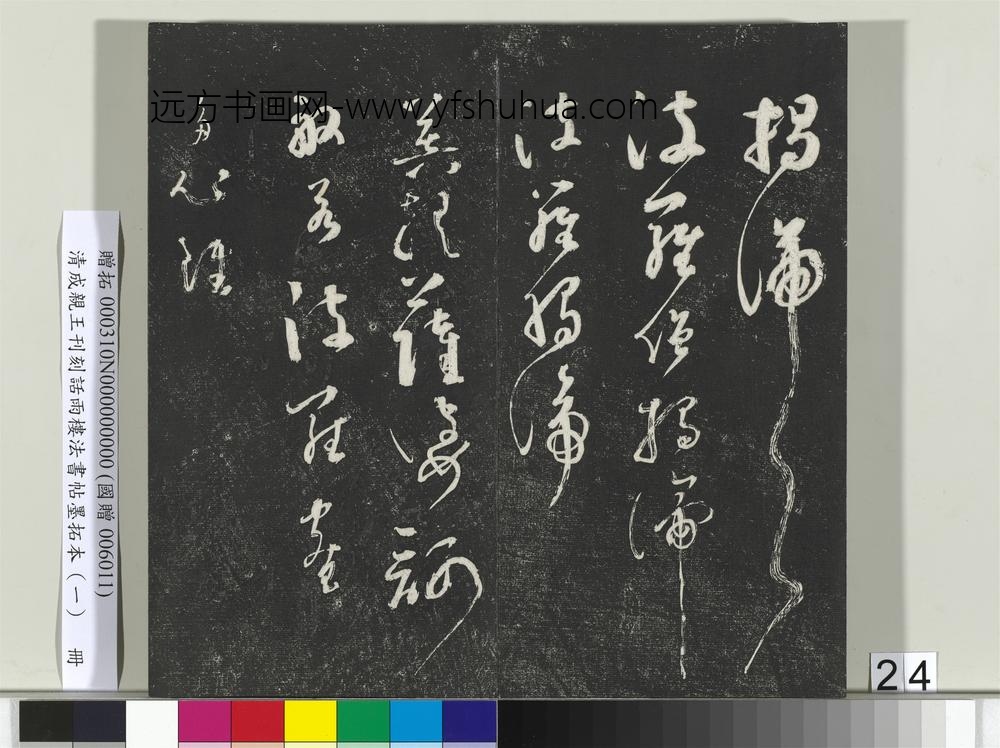 远方书画网-www.yfshuhua.com
揭諦
波羅僧揭諦
波羅揭諦
菩提薩婆訶
般若波羅蜜
多心經
贈拓 000310N000000000(國贈 006011)
清成親王刊刻話雨樓法書帖墨拓本(一) 冊
24